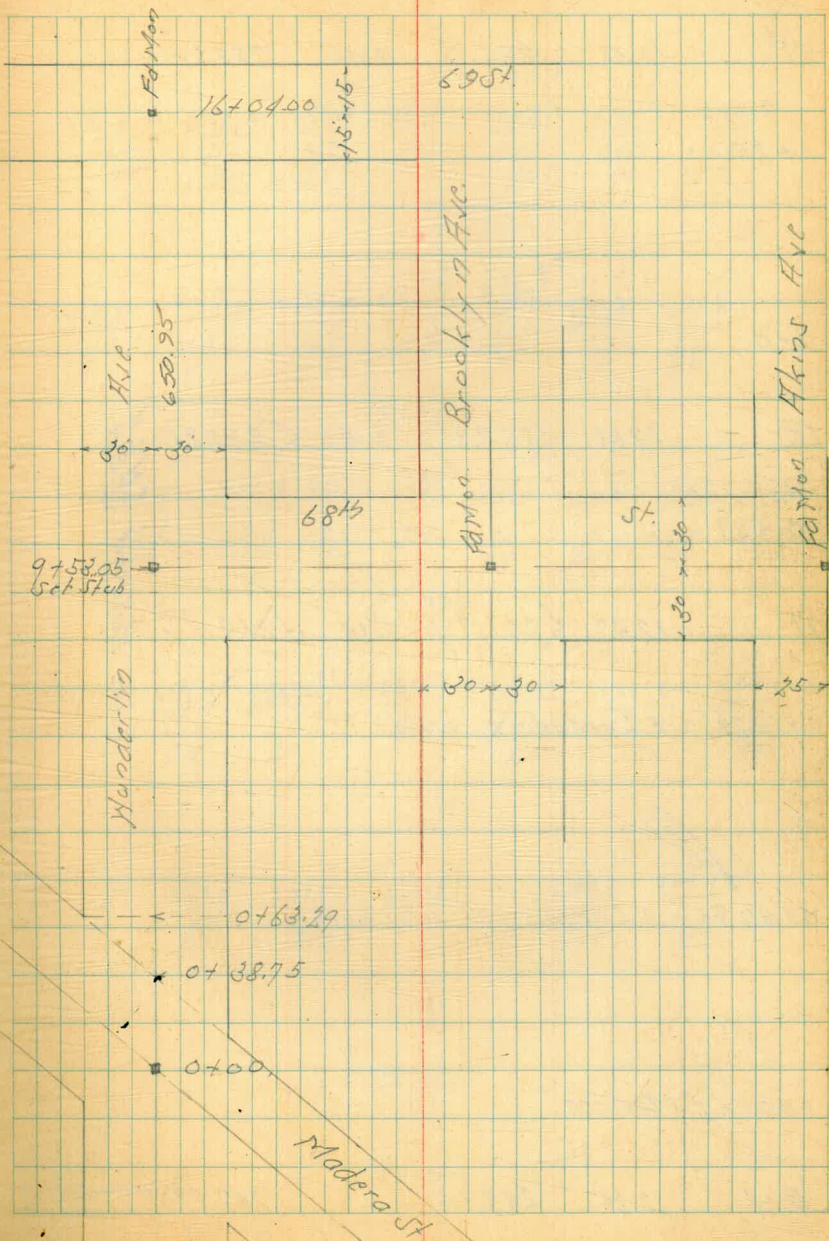 Fd Mon
16+04.00
15 15
69 St.
Wunderlin Ave
650.95
30 30
Brooklyn Ave.
Akins Ave
68th St.
Fd Mon
Fd Mon
9+53.05
Set Stub
30 30
30 30
25
0+63.29
0+38.75
0+00
Madera St